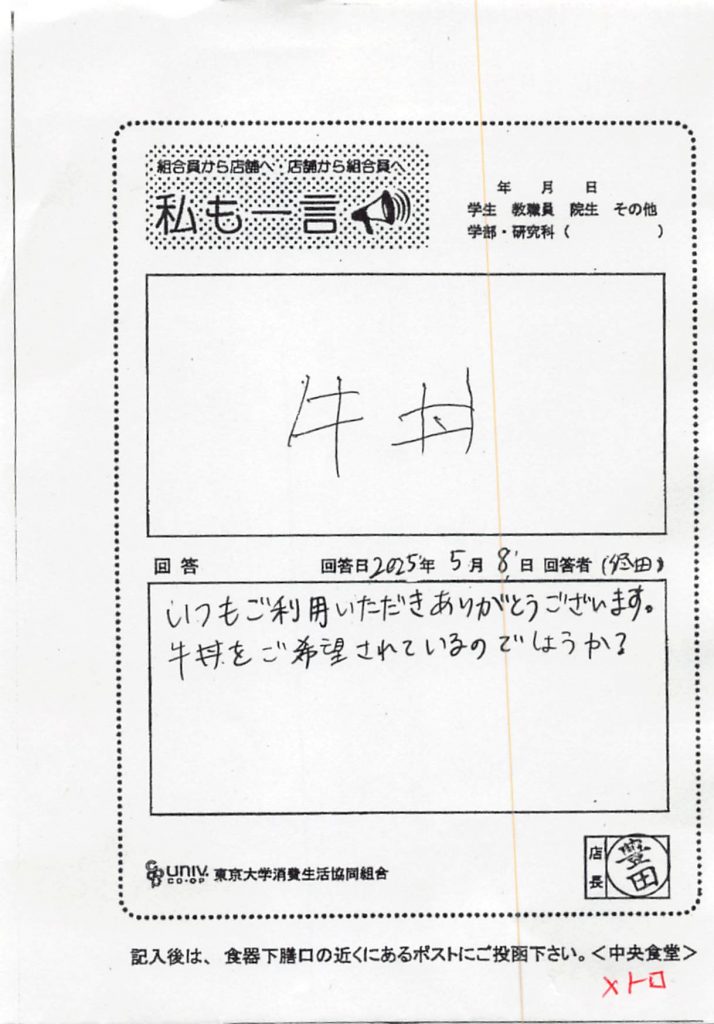 組合員から店舗へ・店舗から組合員へ
私も一言
年 月 日
学生 教職員 院生 その他
学部・研究科 ( )
牛丼
回答 回答日2025年 5月 8日 回答者 (豊田)
いつもご利用いただきありがとうございます。
牛丼をご希望されているのでしょうか?
univ. CO-OP 東京大学消費生活協同組合
店長 豊田
記入後は、食器下膳口の近くにあるポストにご投函下さい。<中央食堂>
メトロ